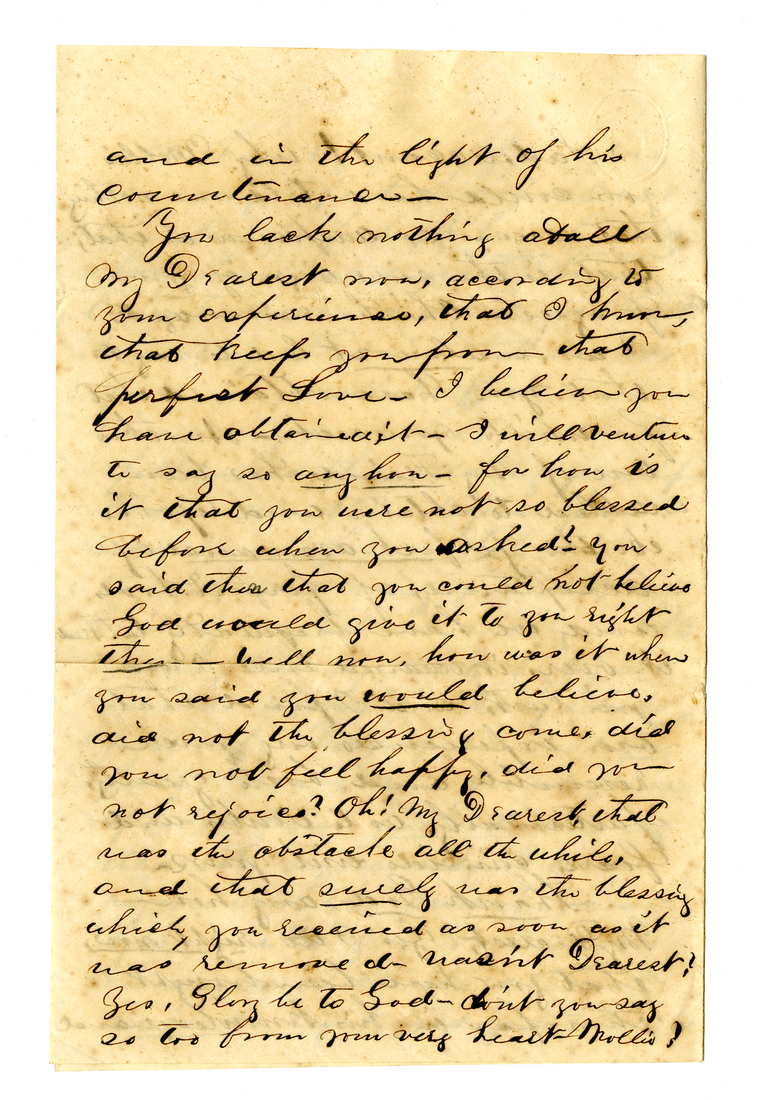 and in the light of his
countenance—
You lack nothing atall
My Dearest now, according to
your experience, that I know,
that keeps you from that
perfect Love— I believe you
have obtained it— I will venture
to say so anyhow— for how is
it that you were not so blessed
before when you asked?— you
said then that you could not believe
God would give it to you right
then— well now, how was it when
you said you would believe,
did not the blessing come, did
you not feel happy, did you
not rejoice? Oh! My Dearest, that
was the obstacle all the while,
and that surely was the blessing
which you received as soon as it
was removed— was'nt Dearest?
Yes, Glory be to God— don't you say
so too from your very heart— Mollie?